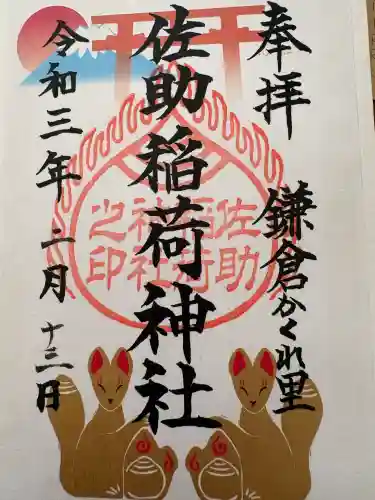 奉拝
鎌倉かくれ里
佐助稲荷神社
令和三年二月十三日
佐助
稲荷
神社
之印